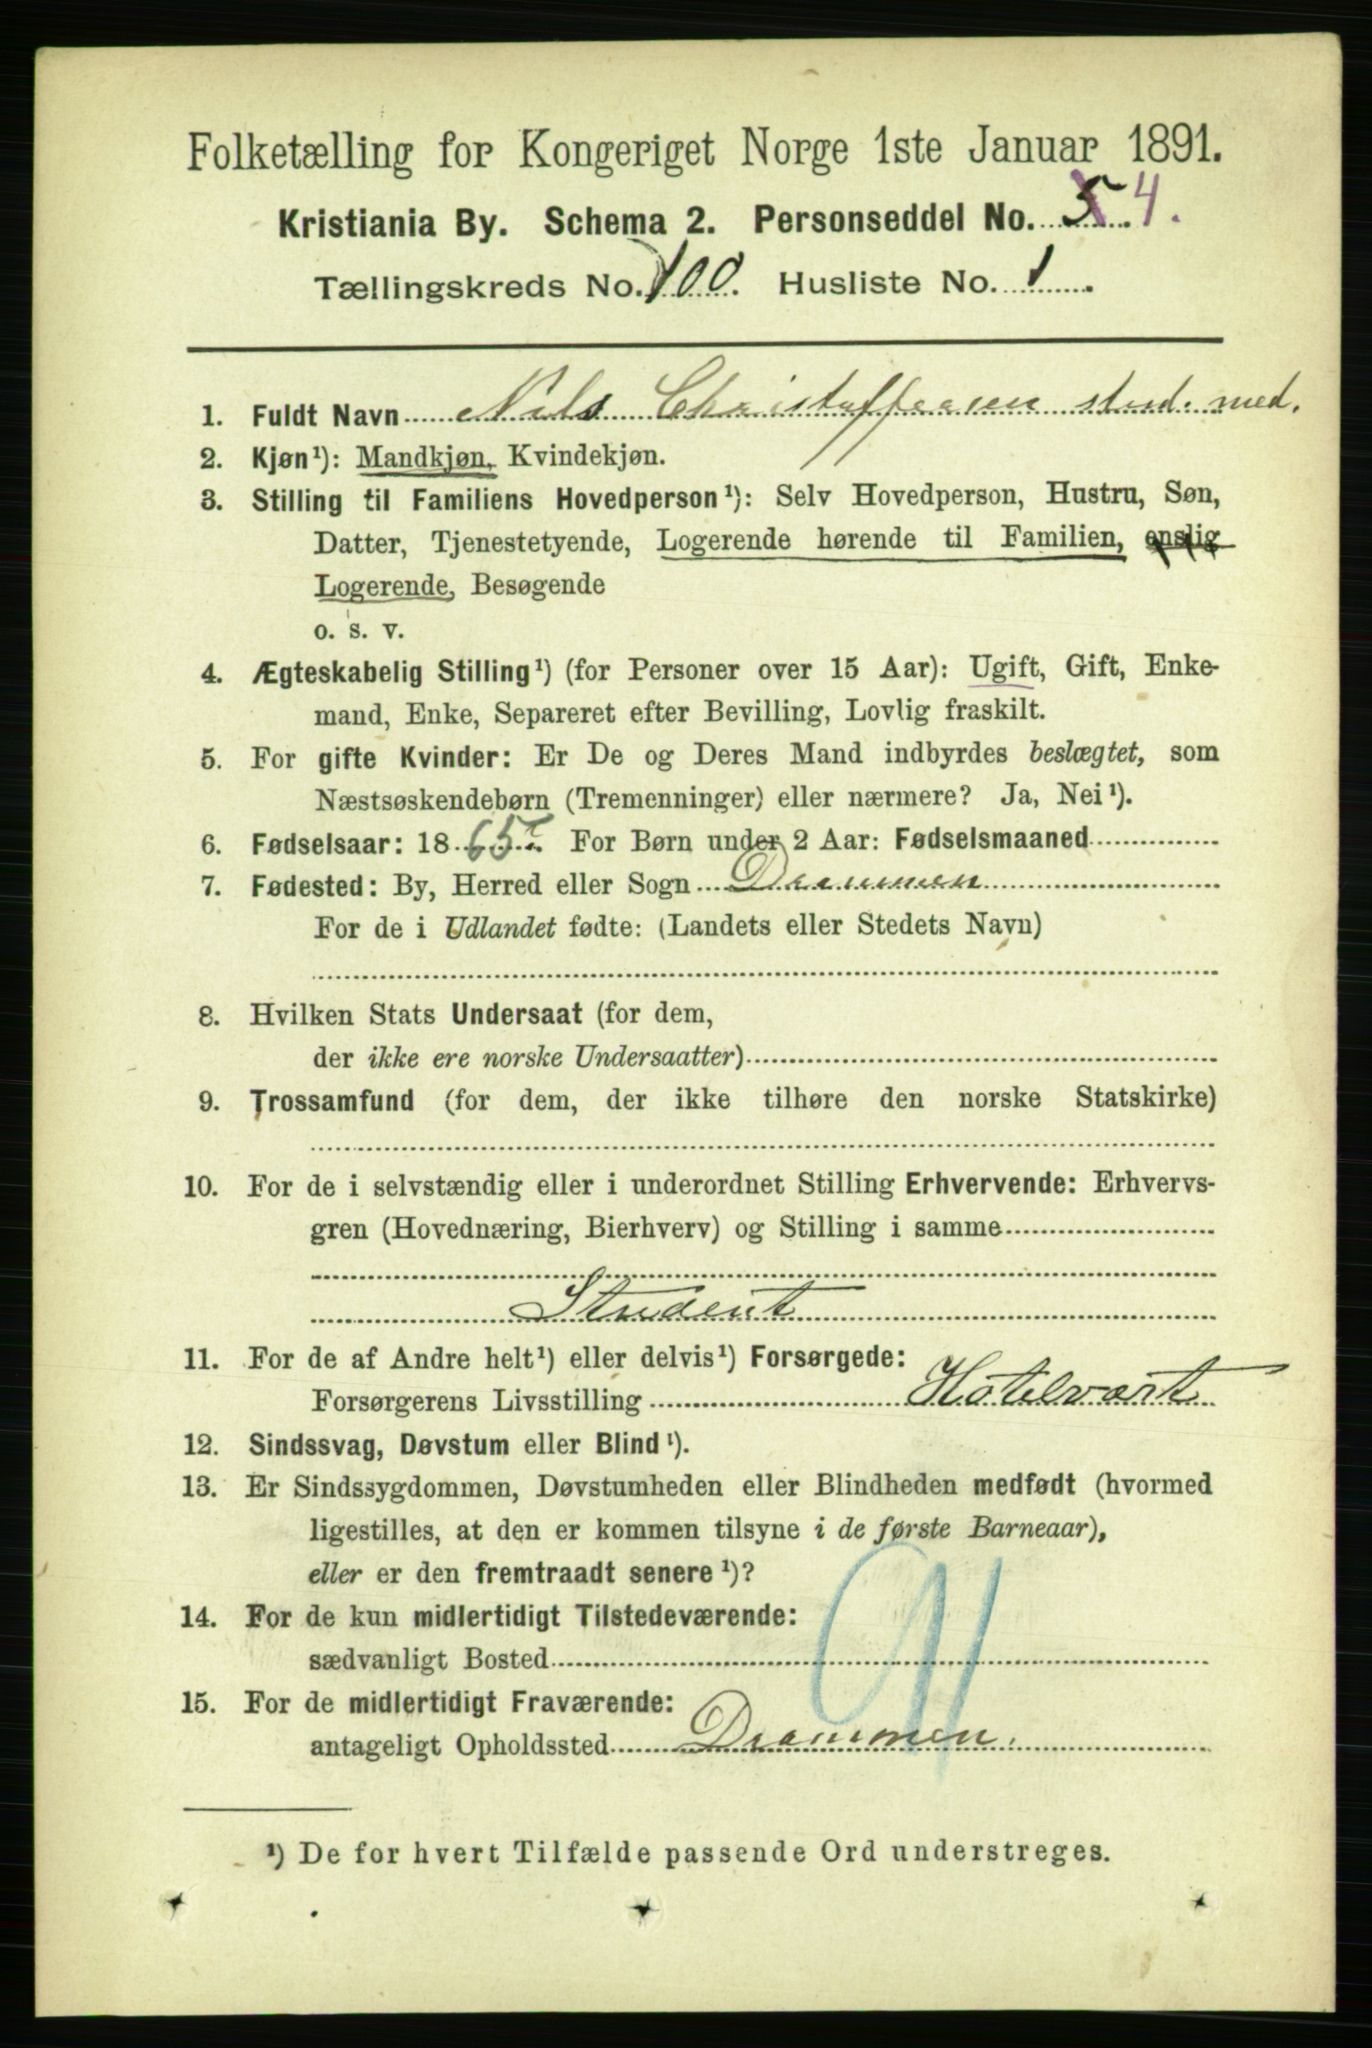 Folketælling for Kongeriget Norge 1ste Januar 1891.
Kristiania By. Schema 2. Personseddel No. 5 4.
Tællingskreds No. 100. Husliste No. 1
1. Fuldt Navn Nils Christoffersen stud. med.
2. Kjøn¹): Mandkjøn, Kvindekjøn.
3. Stilling til Familiens Hovedperson¹): Selv Hovedperson, Hustru, Søn,
Datter, Tjenestetyende, Logerende hørende til Familien, enslig
Logerende, Besøgende
o. s. v.
4. Ægteskabelig Stilling¹) (for Personer over 15 Aar): Ugift, Gift, Enke-
mand, Enke, Separeret efter Bevilling, Lovlig fraskilt.
5. For gifte Kvinder: Er De og Deres Mand indbyrdes beslægtet, som
Næstsøskendebørn (Tremenninger) eller nærmere? Ja, Nei¹).
6. Fødselsaar: 1865. For Børn under 2 Aar: Fødselsmaaned
7. Fødested: By, Herred eller Sogn Drammen
For de i Udlandet fødte: (Landets eller Stedets Navn)
8. Hvilken Stats Undersaat (for dem,
der ikke ere norske Undersaatter)
9. Trossamfund (for dem, der ikke tilhøre den norske Statskirke)
10. For de i selvstændig eller i underordnet Stilling Erhvervende: Erhvervs-
gren (Hovednæring, Bierhverv) og Stilling i samme
Student
11. For de af Andre helt¹) eller delvis¹) Forsørgede:
Forsørgerens Livsstilling Hotelvært
12. Sindssvag, Døvstum eller Blind¹).
13. Er Sindssygdommen, Døvstumheden eller Blindheden medfødt (hvormed
ligestilles, at den er kommen tilsyne i de første Barneaar),
eller er den fremtraadt senere¹)?
14. For de kun midlertidigt Tilstedeværende:
sædvanligt Bosted
91
15. For de midlertidigt Fraværende:
antageligt Opholdssted Drammen.
¹) De for hvert Tilfælde passende Ord understreges.